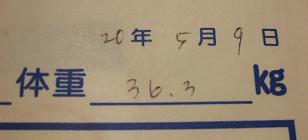 20年 5月 9日
体重 36.3 kg